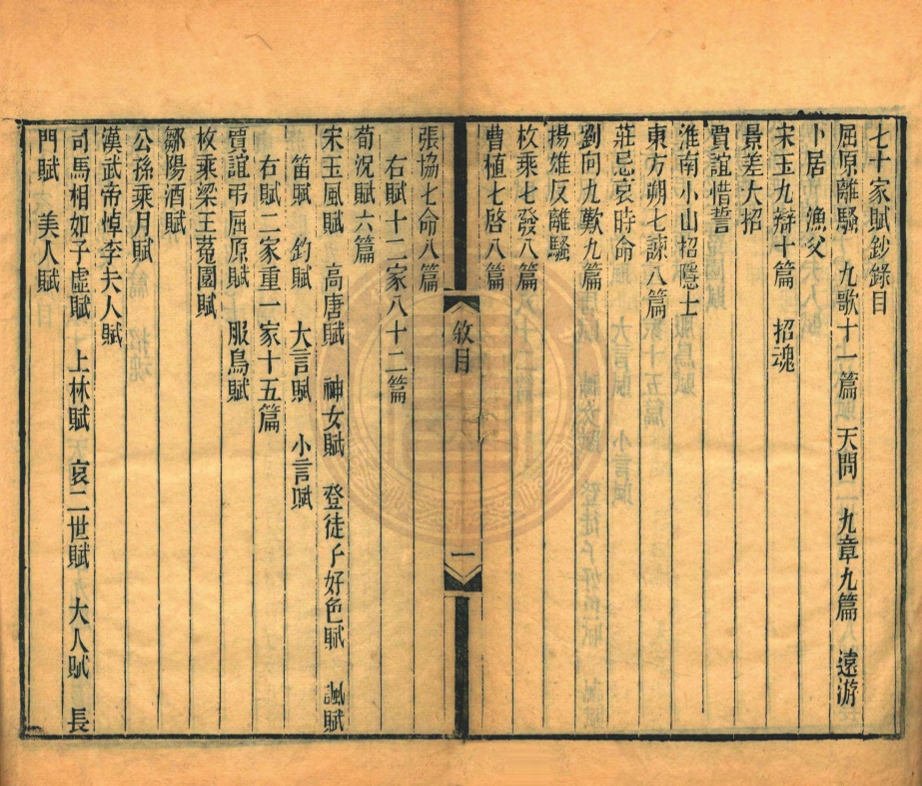 七十家賦鈔錄目
屈原離騷 九歌十一篇 天問 九章九篇 遠游
卜居 漁父
宋玉九辯十篇 招魂
景差大招
賈誼惜誓
淮南小山招隱士
東方朔七諫八篇
莊忌哀時命
劉向九歎九篇
揚雄反離騷
枚乘七發八篇
曹植七啓八篇
敘目
一
張協七命八篇
右賦十二家八十二篇
荀況賦六篇
宋玉風賦 高唐賦 神女賦 登徒子好色賦 諷賦
笛賦 釣賦 大言賦 小言賦
右賦二家重一家十五篇
賈誼弔屈原賦 服鳥賦
枚乘梁王菟園賦
鄒陽酒賦
公孫乘月賦
漢武帝悼李夫人賦
司馬相如子虛賦 上林賦 哀二世賦 大人賦 長
門賦 美人賦